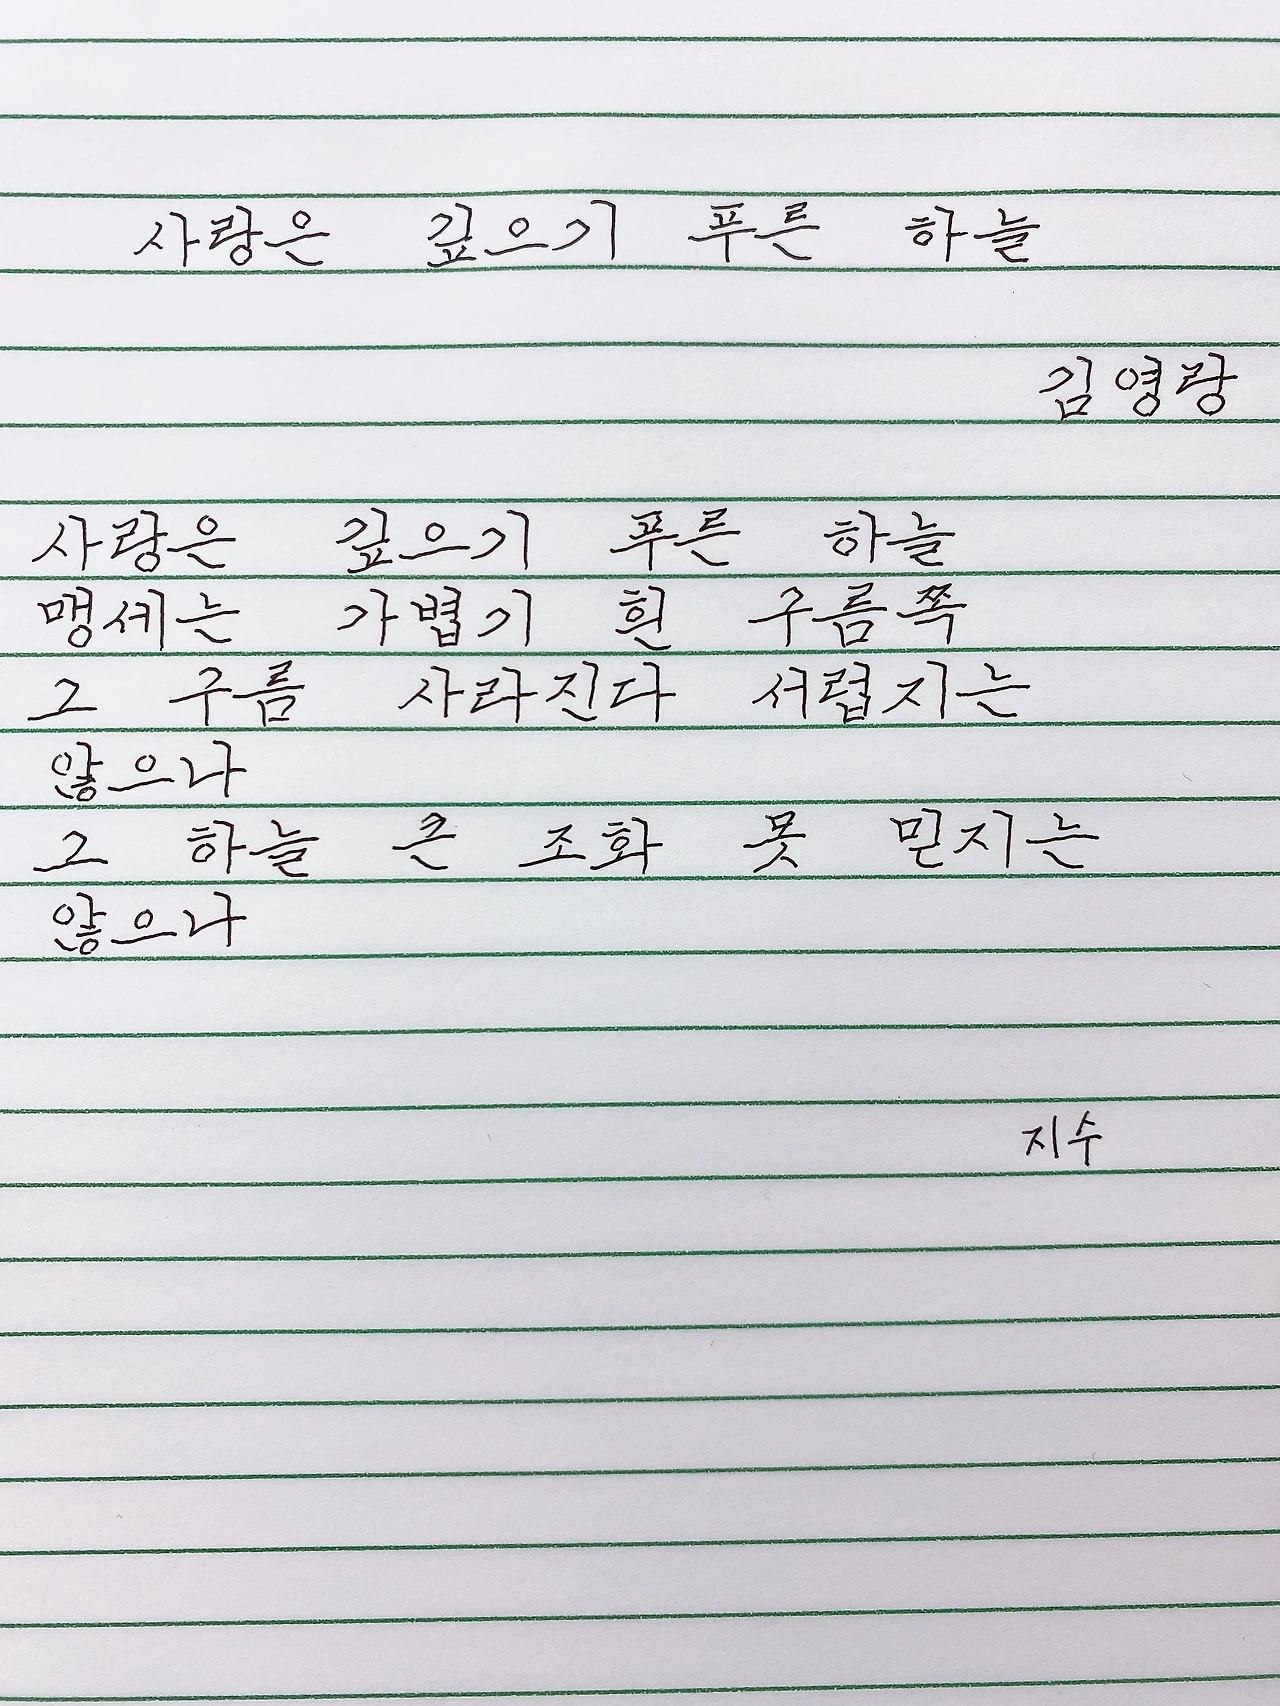 사랑은 깊으기 푸른 하늘
김영랑
사랑은 깊으기 푸른 하늘
맹세는 가볍기 흰 구름쪽
그 구름 사라진다 서럽지는
않으나
그 하늘 큰 조화 못 믿지는
않으나
지수